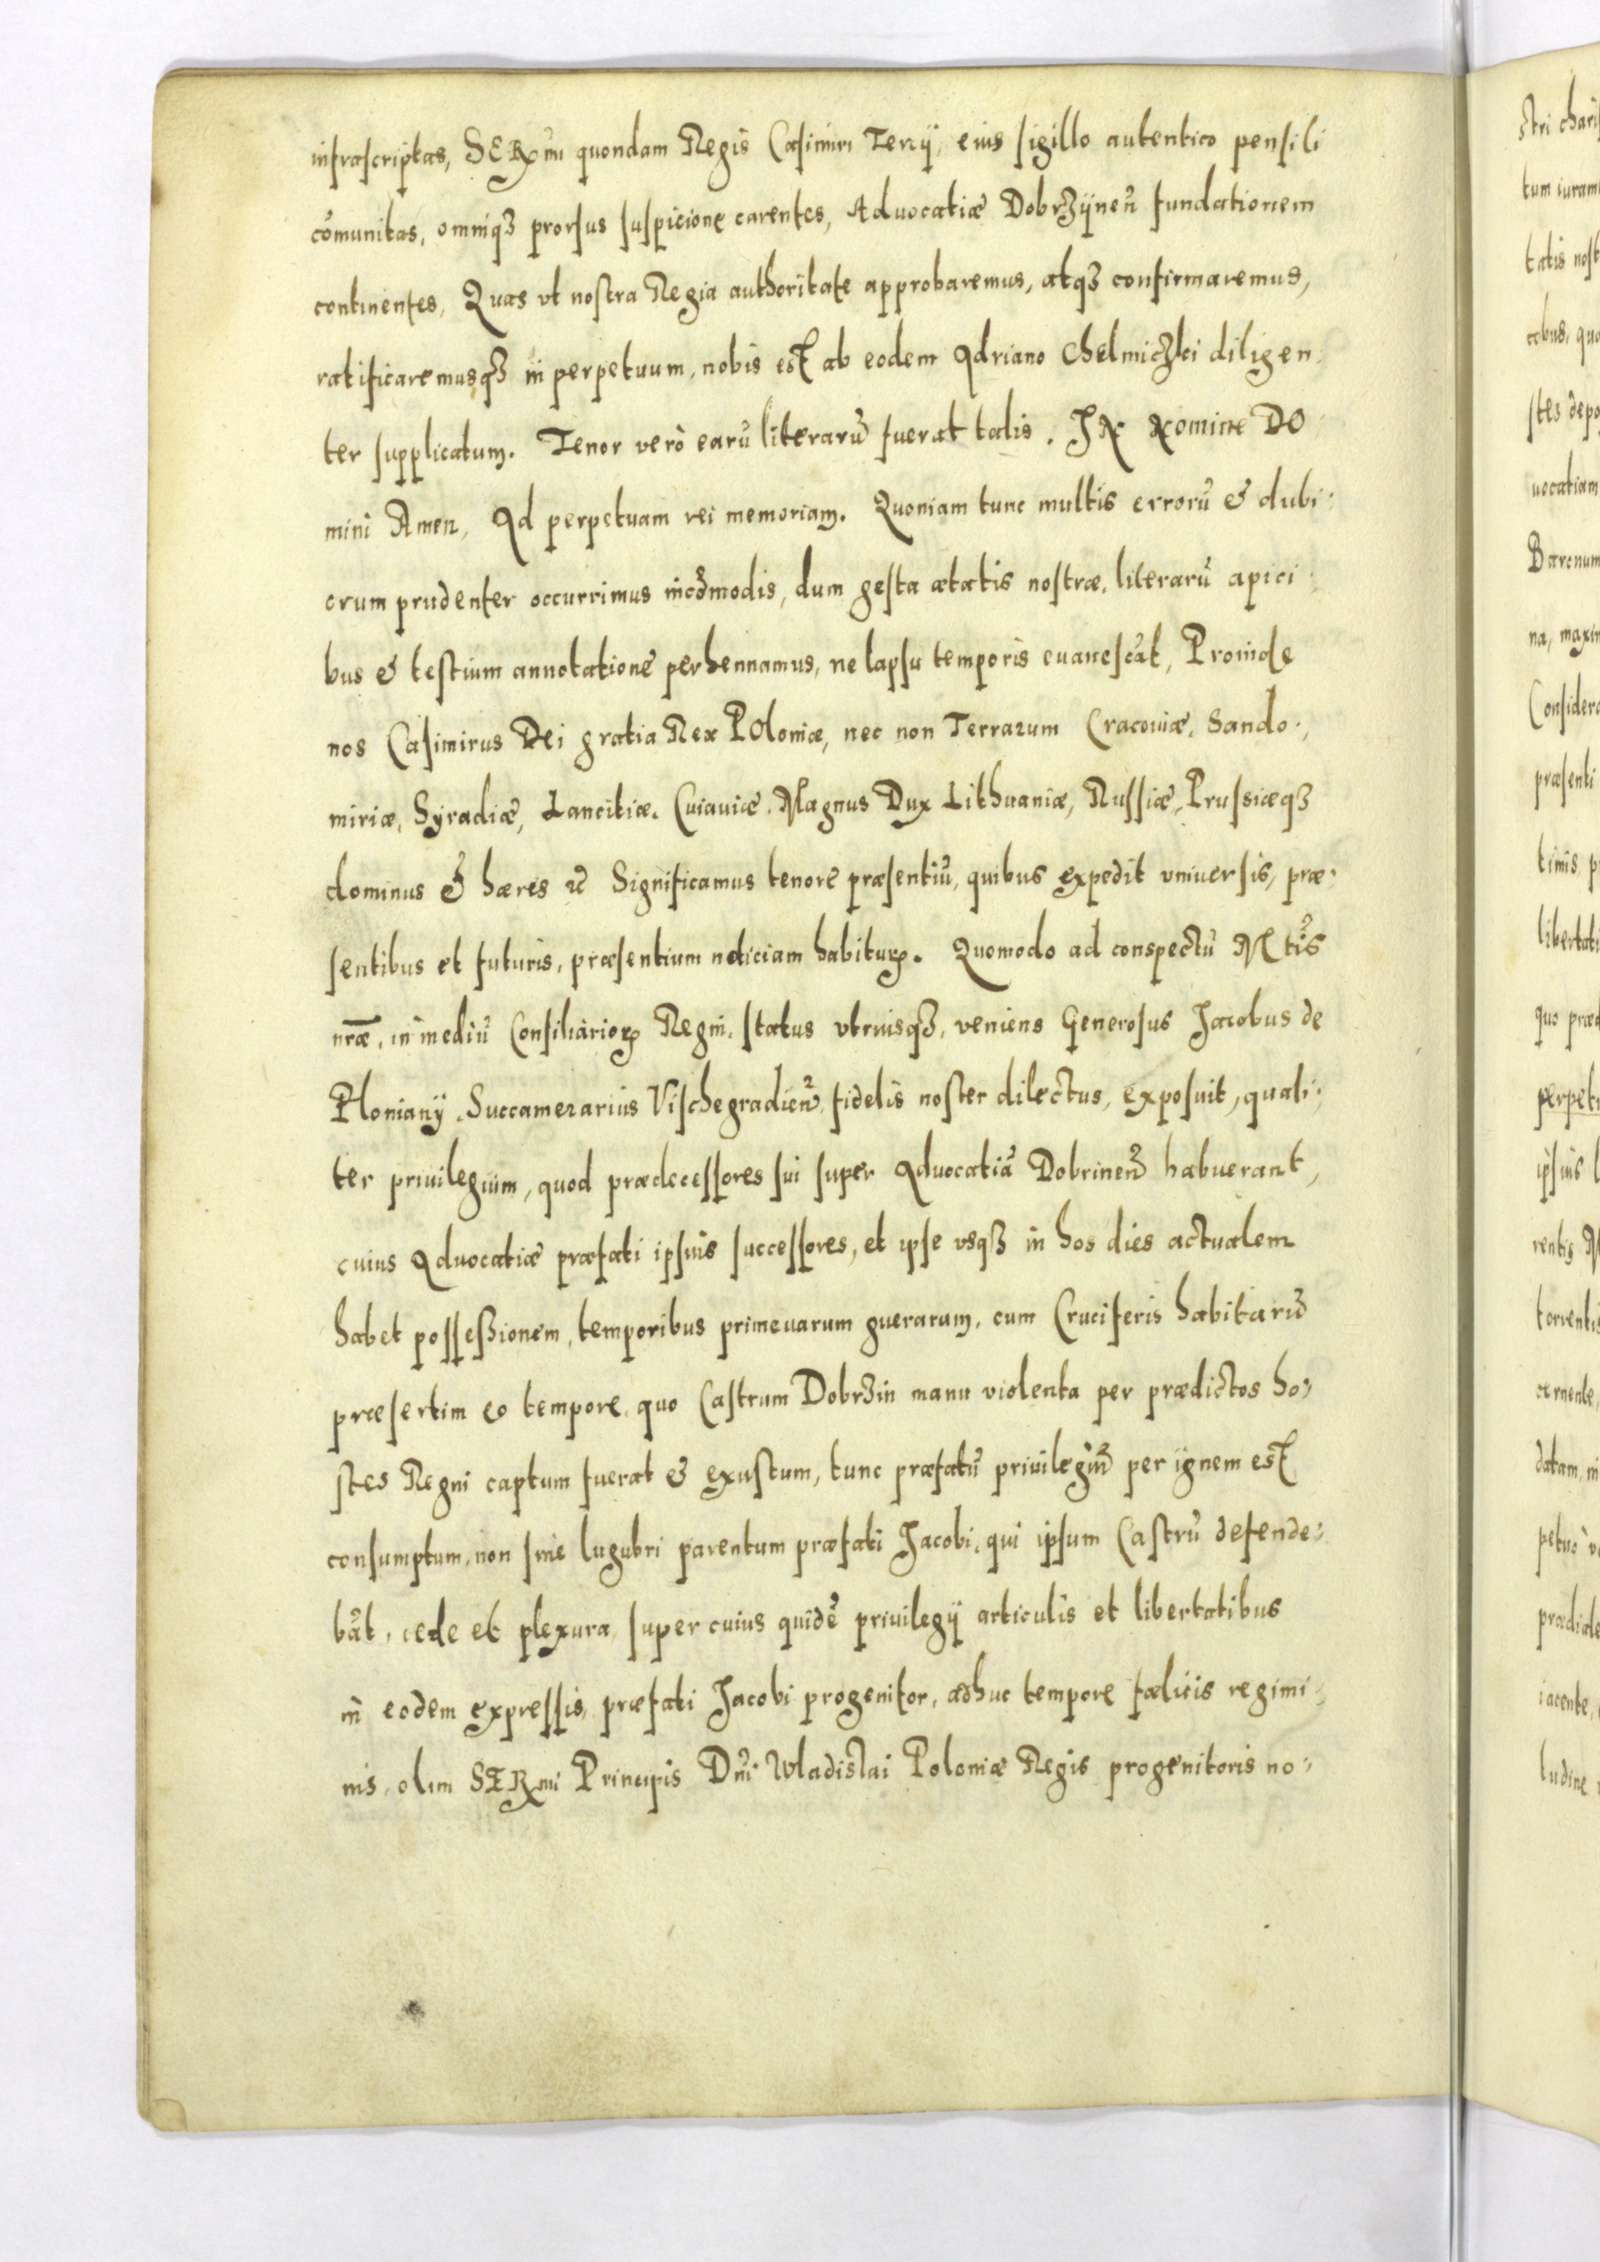 infrascriptas, SERmi quondam Regis Casimiri Terij, eius sigillo autentico pensili
cōmunitas, omniqȝ prorsus suspicione carentes, Aduocatiæ Dobrzÿneñ fundationem
continentes, Quas vt nostra Regia authoritate approbaremus, atqȝ confirmaremus,
ratificaremusqȝ in perpetuum, nobis est ab eodem Adriano Chelmiczki diligen
ter supplicatum. Tenor verò earū literarū fuerat talis. IN Nomine DO
mini Amen, Ad perpetuam rei memoriam. Quoniam tunc multis errorū & dubi:
orum prudenter occurrimus incōmodis, dum gesta ætatis nostræ, literarū apici:
bus & testium annotatione perhennamus, ne lapsu temporis euanescāt, Proinde
nos Casimirus Dei gratia Rex POloniæ, nec non Terrarum Cracouiæ, Sando:
miriæ, Syradiæ, Lancitiæ, Cuiauiæ, Magnus Dux Lithuaniæ, Russiæ, Prussiæqȝ
dominus & hæres ꝛc Significamus tenore præsentiū, quibus expedit vniuersis, præ:
sentibus et futuris, præsentium noticiam habiturꝝ. Quomodo ad conspectū Mtis
nr̄æ, in mediū Consiliarioꝝ Regni, status vtriusqȝ, veniens Generosus Jacobus de
Ploniany Succamerarius Vischegradieñ, fidelis noster dilectus, exposuit, quali:
ter priuilegium, quod prædecessores sui super Aduocatiā Dobrineñ habuerant,
cuius Aduocatiæ præfati ipsius successores, et ipse vsqȝ in hos dies actualem
habet possessionem, temporibus primeuarum guerarum, cum Cruciferis habitarū
præsertim eo tempore, quo Castrum Dobrzin manu violenta per prædictos ho:
stes Regni captum fuerat & exustum, tunc præfatū priuilegiū per ignem est
consumptum, non sine lugubri parentum præfati Jacobi, qui ipsum Castrū defende:
bāt, cede et plexura, super cuius quidē priuilegij articulis et libertatibus
in eodem expressis, præfati Jacobi progenitor, adhuc tempore fælicis regimi:
nis, olim SERmi Principis Dn̄i Wladislai Poloniæ Regis progenitoris no: